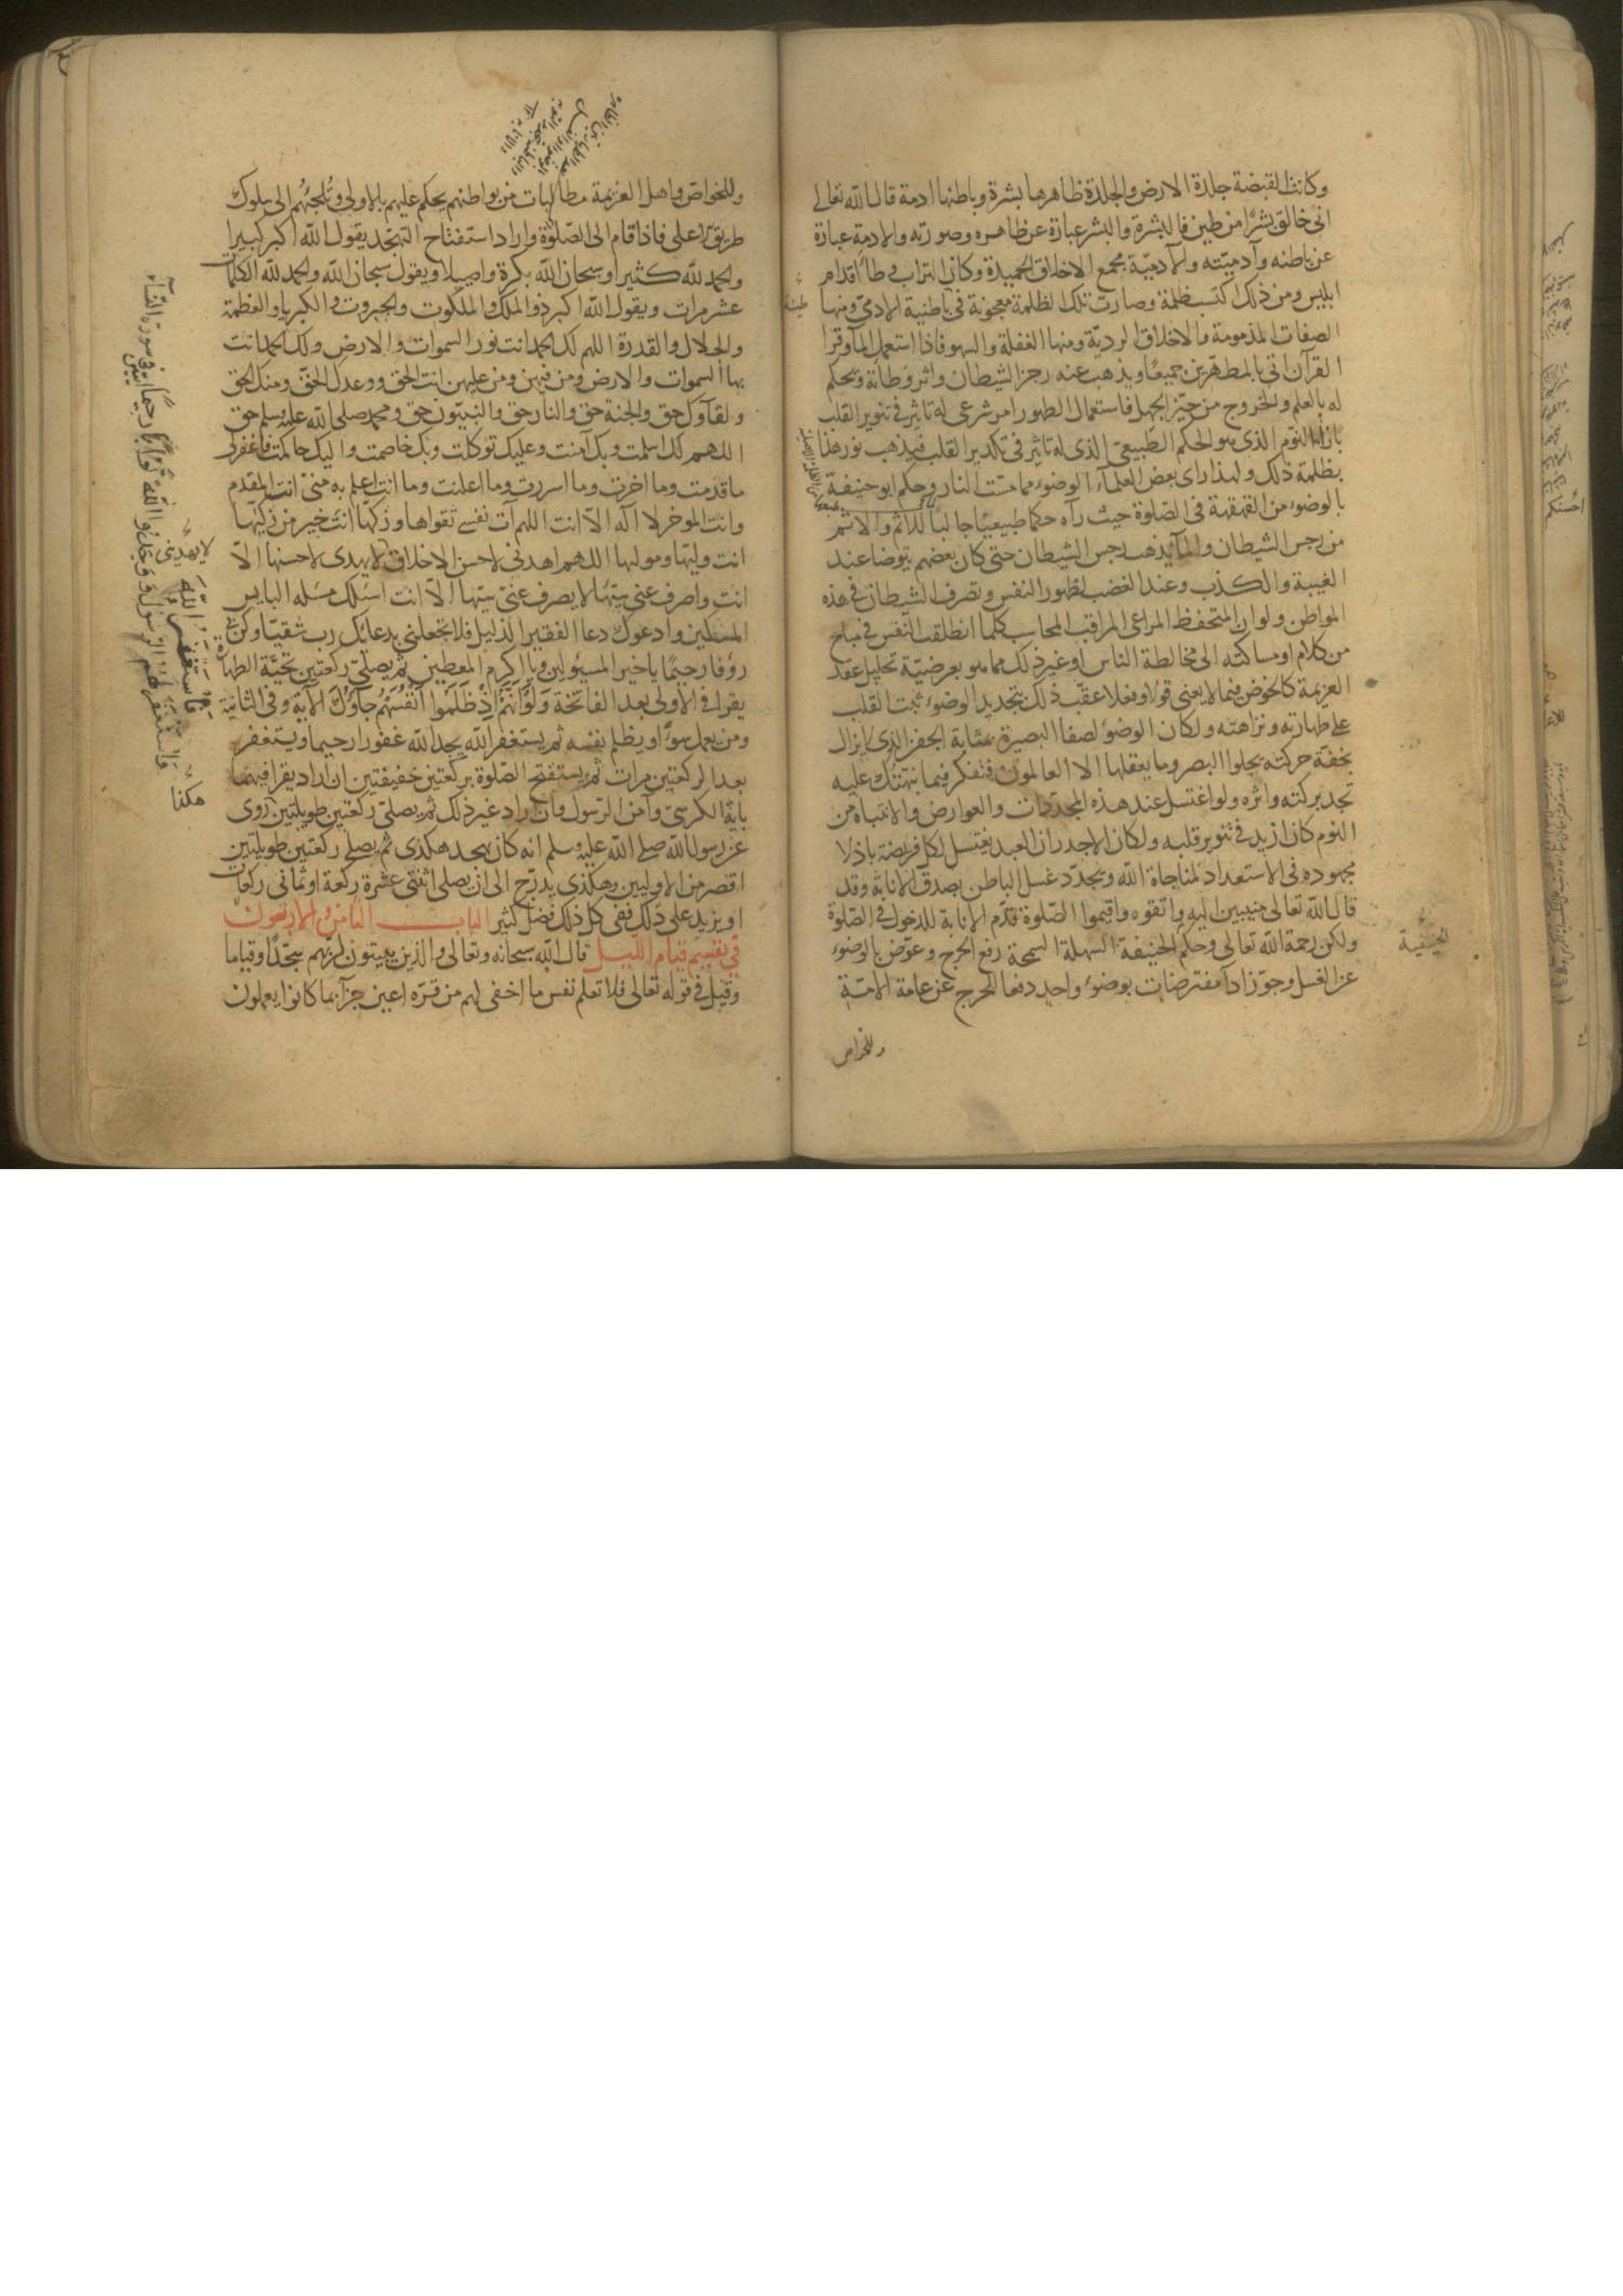 وكانت القبضة جلدة الارض والجلدة ظاهرها بشرة وباطنها ادمة قال الله تعالى
انى خالق بشرا من طين فالبشرة والبشر عبارة عن ظاهره وصورته والادمة عبارة
عن باطنه وآدميته والآدمية مجمع الاخلاق الحميدة وكان التراب موطأ اقدام
ابليس ومن ذلك اكتسب ظلمة وصارت تلك الظلمة معجونة فى باطنية الادمى ومنها
طينة
الصفات المذمومة والاخلاق الردية ومنها الغفلة والسهو فاذا استعمل المآ وقرا
القرآن اتى بالمطهرين جميعا ويذهب عنه رجز الشيطان واثر وطأته ويحكم
له بالعلم والخروج من حيز الجهل فاستعمال الطهور امر شرعى له تاثير فى تنوير القلب
بازاء النوم الذى هو الحكم الطبيعى الذى له تاثير فى تكدير القلب فيذهب نور هذا
بظلمة ذلك ولهذا راى بعض العلماء الوضوء مما مست النار وحكم ابو حنيفة
بالوضوء من القهقهة فى الصلوة حيث رآه حكما طبيعيا جالبا للاثم والاثم
من رجس الشيطان والمآ يذهب رجس الشيطان حتى كان بعضهم يتوضا عند
الغيبة والكذب وعند الغضب لظهور النفس وتصرف الشيطان فى هذه
المواطن ولو ان المتحفظ المراعى المراقب المحاسب كلما انطلقت النفس فى مباح
من كلام او مساكنة الى مخالطة الناس او غير ذلك مما هو بعرضية تحليل عقد
العزيمة كالخوض فيما لا يعنى قولا وفعلا عقب ذلك بتجديد الوضوء ثبت القلب
على طهارته ونزاهته ولكان الوضوء لصفا البصيرة بمثابة الجفن الذى لا يزال
بخفة حركته يجلوا البصر وما يعقلها الا العالمون فتفكر فيما نبهتك عليه
تجد بركته واثره ولو اغتسل عند هذه المجددات والعوارض والانتباه من
النوم كان ازيد فى تنوير قلبه ولكان الاجدر ان العبد يغتسل لكل فريضة باذلا
مجهوده فى الاستعداد لمناجاة الله ويجدد غسل الباطن بصدق الانابة وقد
قال الله تعالى منيبين اليه واتقوه واقيموا الصلوة قدم الانابة للدخول فى الصلوة
ولكن رحمة الله تعالى وحكم الحنيفة السهلة السمحة رفع الحرج وعوض بالوضوء
الحنيفية
عن الغسل وجوز ادآ مفترضات بوضوء واحد دفعا للحرج عن عامة الامة
وللخواص
وللخواص واهل العزيمة مطالبات من بواطنهم يحكم عليهم بالاولى وتلجئهم الى سلوك
طريق اعلى فاذا قام الى الصلوة واراد استفتاح التهجد يقول الله اكبر كبيرا
والحمد لله كثيرا وسبحان الله بكرة واصيلا ويقول سبحان الله والحمد لله الكلمات
عشر مرات ويقول الله اكبر ذو الملك والملكوت والجبروت والكبريا والعظمة
والجلال والقدرة اللهم لك الحمد انت نور السموات والارض ولك الحمد انت
بها السموات والارض ومن فيهن ومن عليهن انت الحق ووعدك الحق ومنك الحق
ولقآؤك حق والجنة حق والنار حق والنبيون حق ومحمد صلى الله عليه وسلم حق
اللهم لك اسلمت وبك آمنت وعليك توكلت وبك خاصمت واليك حاكمت فاغفر لى
ما قدمت وما اخرت وما اسررت وما اعلنت وما انت اعلم به منى انت المقدم
وانت الموخر لا اله الا انت اللهم آت نفسى تقواها وزكها انت خير من زكيها
انت وليها وموليها اللهم اهدنى لاحسن الاخلاق لا يهدى لاحسنها الا
لا يهدينى
انت واصرف عنى سيئها لا يصرف عنى سيئها الا انت اسئلك مسئلة البايس
المسكين وادعوك دعا الفقير الذليل فلا تجعلنى بدعائك رب شقيا وكن لى
رؤفا رحيما يا خير المسئولين ويا اكرم المعطين ثم يصلى ركعتين تحية الطهارة
يقرا فى الاولى بعد الفاتحة ولو انهم اذ ظلموا انفسهم جآؤك الآية وفى الثانية
ومن يعمل سوءا او يظلم نفسه ثم يستغفر الله يجد الله غفورا رحيما ويستغفر
بعد الركعتين مرات ثم يستفتح الصلوة بركعتين خفيفتين ان اراد يقرا فيهما
باية الكرسى وآمن الرسول وان اراد غير ذلك ثم يصلى ركعتين طويلتين روى
عن رسول الله صلى الله عليه وسلم انه كان يتهجد هكذى ثم يصلى ركعتين طويلتين
اقصر من الاوليين وهكذى يدرج الى ان يصلى اثنتى عشرة ركعة او ثمانى ركعات
او يزيد على ذلك ففى كل ذلك فضل كثير الباب الثامن والاربعون
فى تقسيم قيام الليل قال الله سبحانه وتعالى والذين يبيتون لربهم سجدا وقياما
وقيل فى قوله تعالى فلا تعلم نفس ما اخفى لهم من قرة اعين جزآ بما كانوا يعملون
فاستغفروا الله
واستغفر لهم الرسول لوجدوا الله توابا رحيما فى سورة النسآء
هكذا